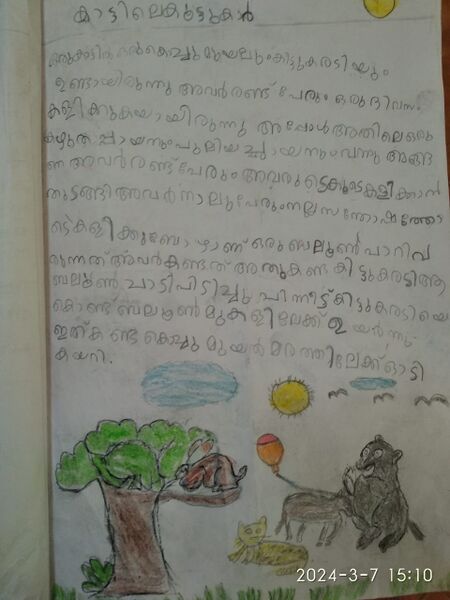 കാട്ടിലെകൂട്ടുകാർ
ഒരുകാട്ടിൽ ഒരുകൊച്ചുമുയലുംകിട്ടുകരടിയും
ഉണ്ടായിരുന്നു അവർരണ്ട് പേരും ഒരുദിവസം
കളിക്കുകയായിരുന്നു അപ്പോൾഅതിലെഒരു
കഴുതപ്പായനുംപുലിയച്ചായനുംവന്നു അങ്ങ
നെ അവർരണ്ട്പേരും അവരുടെകൂടെകളിക്കാൻ
തുടങ്ങിഅവർനാലുപേരുംനല്ലസന്തോഷത്തോ
ടെകളിക്കുബോഴാണ് ഒരുബലൂൺപാറിവ
രുന്നത്അവർകണ്ടത്അതുകണ്ടകിട്ടുകരടിആ
ബലൂൺ ചാടിപിടിച്ചു പിന്നീട്ട്കിട്ടുകരടിയെ
കൊണ്ട്ബലൂൺമുകളിലേക്ക്ഉയർന്നു
ഇത്കണ്ടകൊച്ചുമുയൽമരത്തിലേക്ക്ഓടി
കയറി.
2024-3-7 15:10